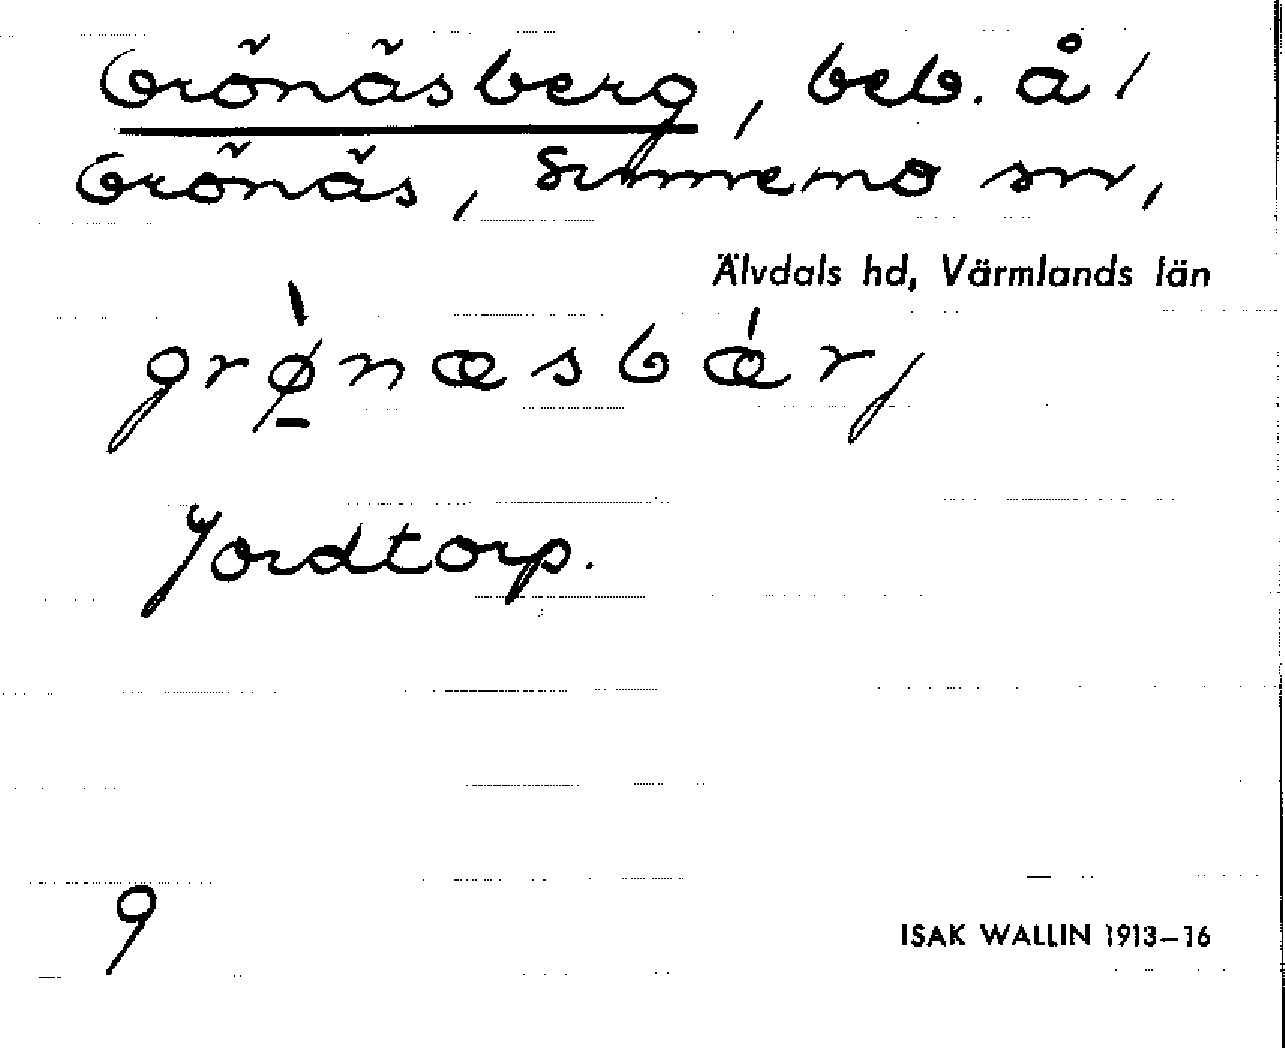 Grönäsberg, beb. å /
Grönäs, Sunnemo sn,
Älvdals hd, Värmlands län
grǿ̱næsbǽrj
Jordtorp.
9
ISAK WALLIN 1913–16